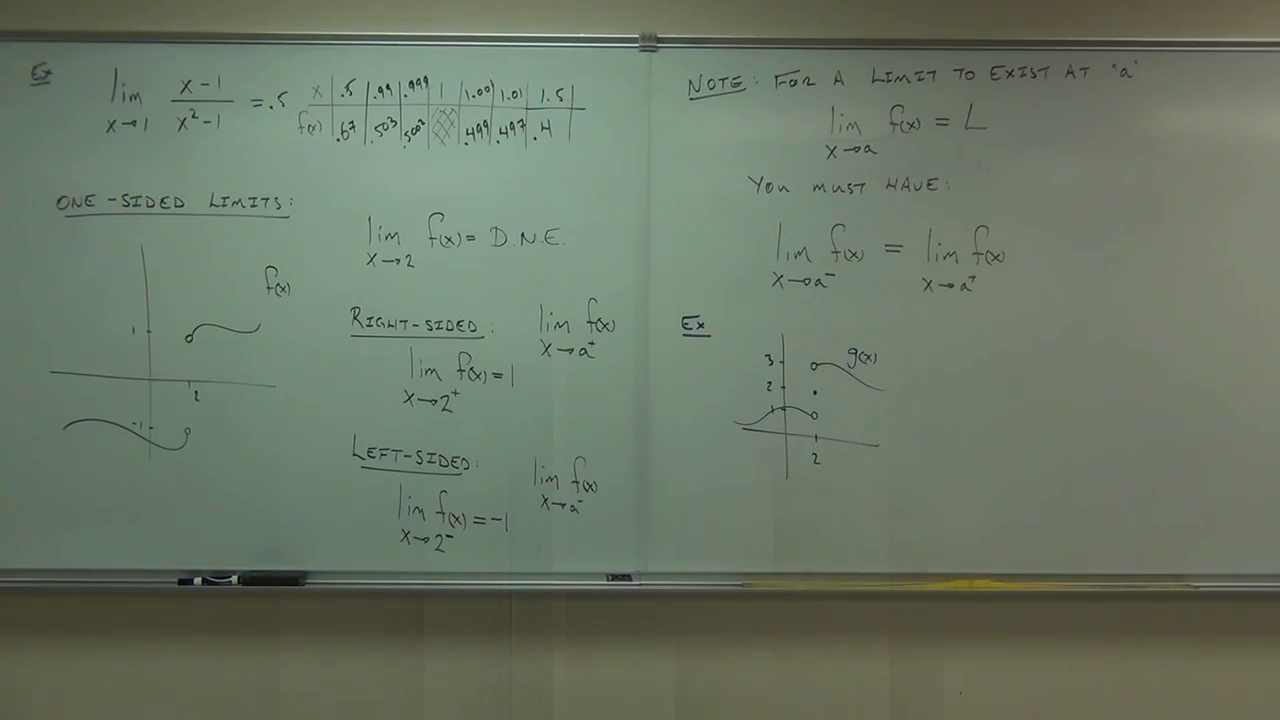 Ex
lim x→1 (x-1)/(x²-1) = .5
x | .5 | .99 | .999 | 1 | 1.001 | 1.01 | 1.5
f(x) | .67 | .503 | .5002 | | .499 | .497 | .4
ONE-SIDED LIMITS:
f(x)
1
2
-1
lim x→2 f(x) = D.N.E.
RIGHT-SIDED: lim x→a⁺ f(x)
lim x→2⁺ f(x) = 1
LEFT-SIDED: lim x→a⁻ f(x)
lim x→2⁻ f(x) = -1
NOTE: FOR A LIMIT TO EXIST AT "a"
lim x→a f(x) = L
YOU MUST HAVE:
lim x→a⁻ f(x) = lim x→a⁺ f(x)
Ex
3 g(x)
2
1
2